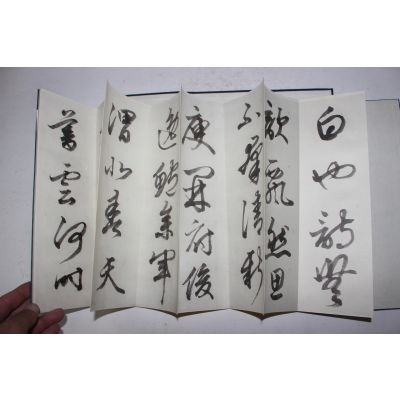 白也詩無
敵飄然思
不羣清新
庾開府俊
逸鮑參軍
渭北春天
暮雲何時